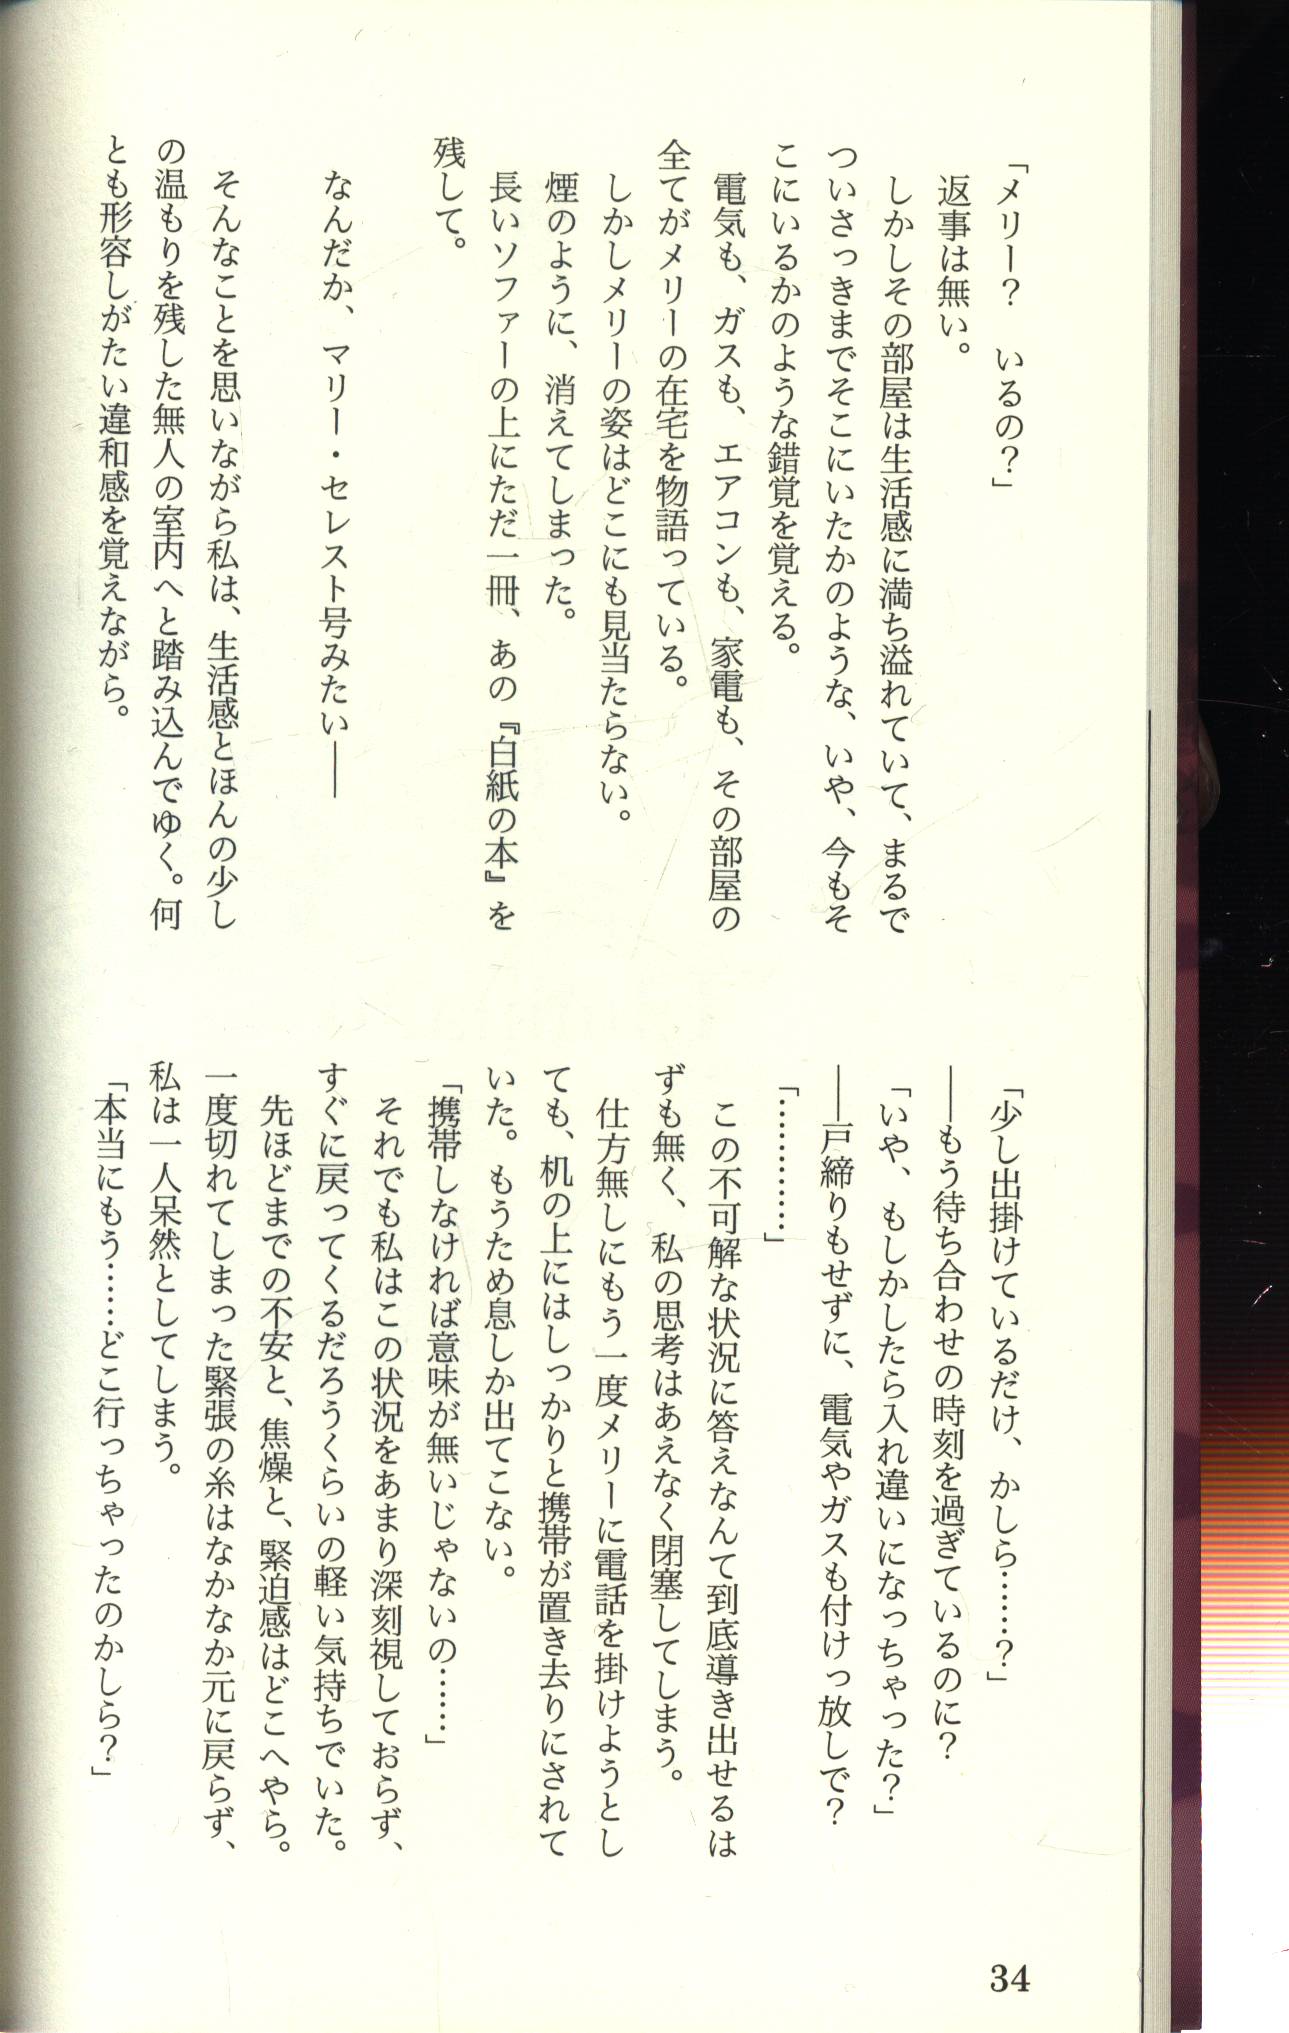 「メリー？　いるの？」
返事は無い。
しかしその部屋は生活感に満ち溢れていて、まるで
ついさっきまでそこにいたかのような、いや、今もそ
こにいるかのような錯覚を覚える。
電気も、ガスも、エアコンも、家電も、その部屋の
全てがメリーの在宅を物語っている。
しかしメリーの姿はどこにも見当たらない。
煙のように、消えてしまった。
長いソファーの上にただ一冊、あの『白紙の本』を
残して。
なんだか、マリー・セレスト号みたい――
そんなことを思いながら私は、生活感とほんの少し
の温もりを残した無人の室内へと踏み込んでゆく。何
とも形容しがたい違和感を覚えながら。
「少し出掛けているだけ、かしら……？」
――もう待ち合わせの時刻を過ぎているのに？
「いや、もしかしたら入れ違いになっちゃった？」
――戸締りもせずに、電気やガスも付けっ放しで？
「…………」
この不可解な状況に答えなんて到底導き出せるは
ずも無く、私の思考はあえなく閉塞してしまう。
仕方無しにもう一度メリーに電話を掛けようとし
ても、机の上にはしっかりと携帯が置き去りにされて
いた。もうため息しか出てこない。
「携帯しなければ意味が無いじゃないの……」
それでも私はこの状況をあまり深刻視しておらず、
すぐに戻ってくるだろうくらいの軽い気持ちでいた。
先ほどまでの不安と、焦燥と、緊迫感はどこへやら。
一度切れてしまった緊張の糸はなかなか元に戻らず、
私は一人呆然としてしまう。
「本当にもう……どこ行っちゃったのかしら？」
34